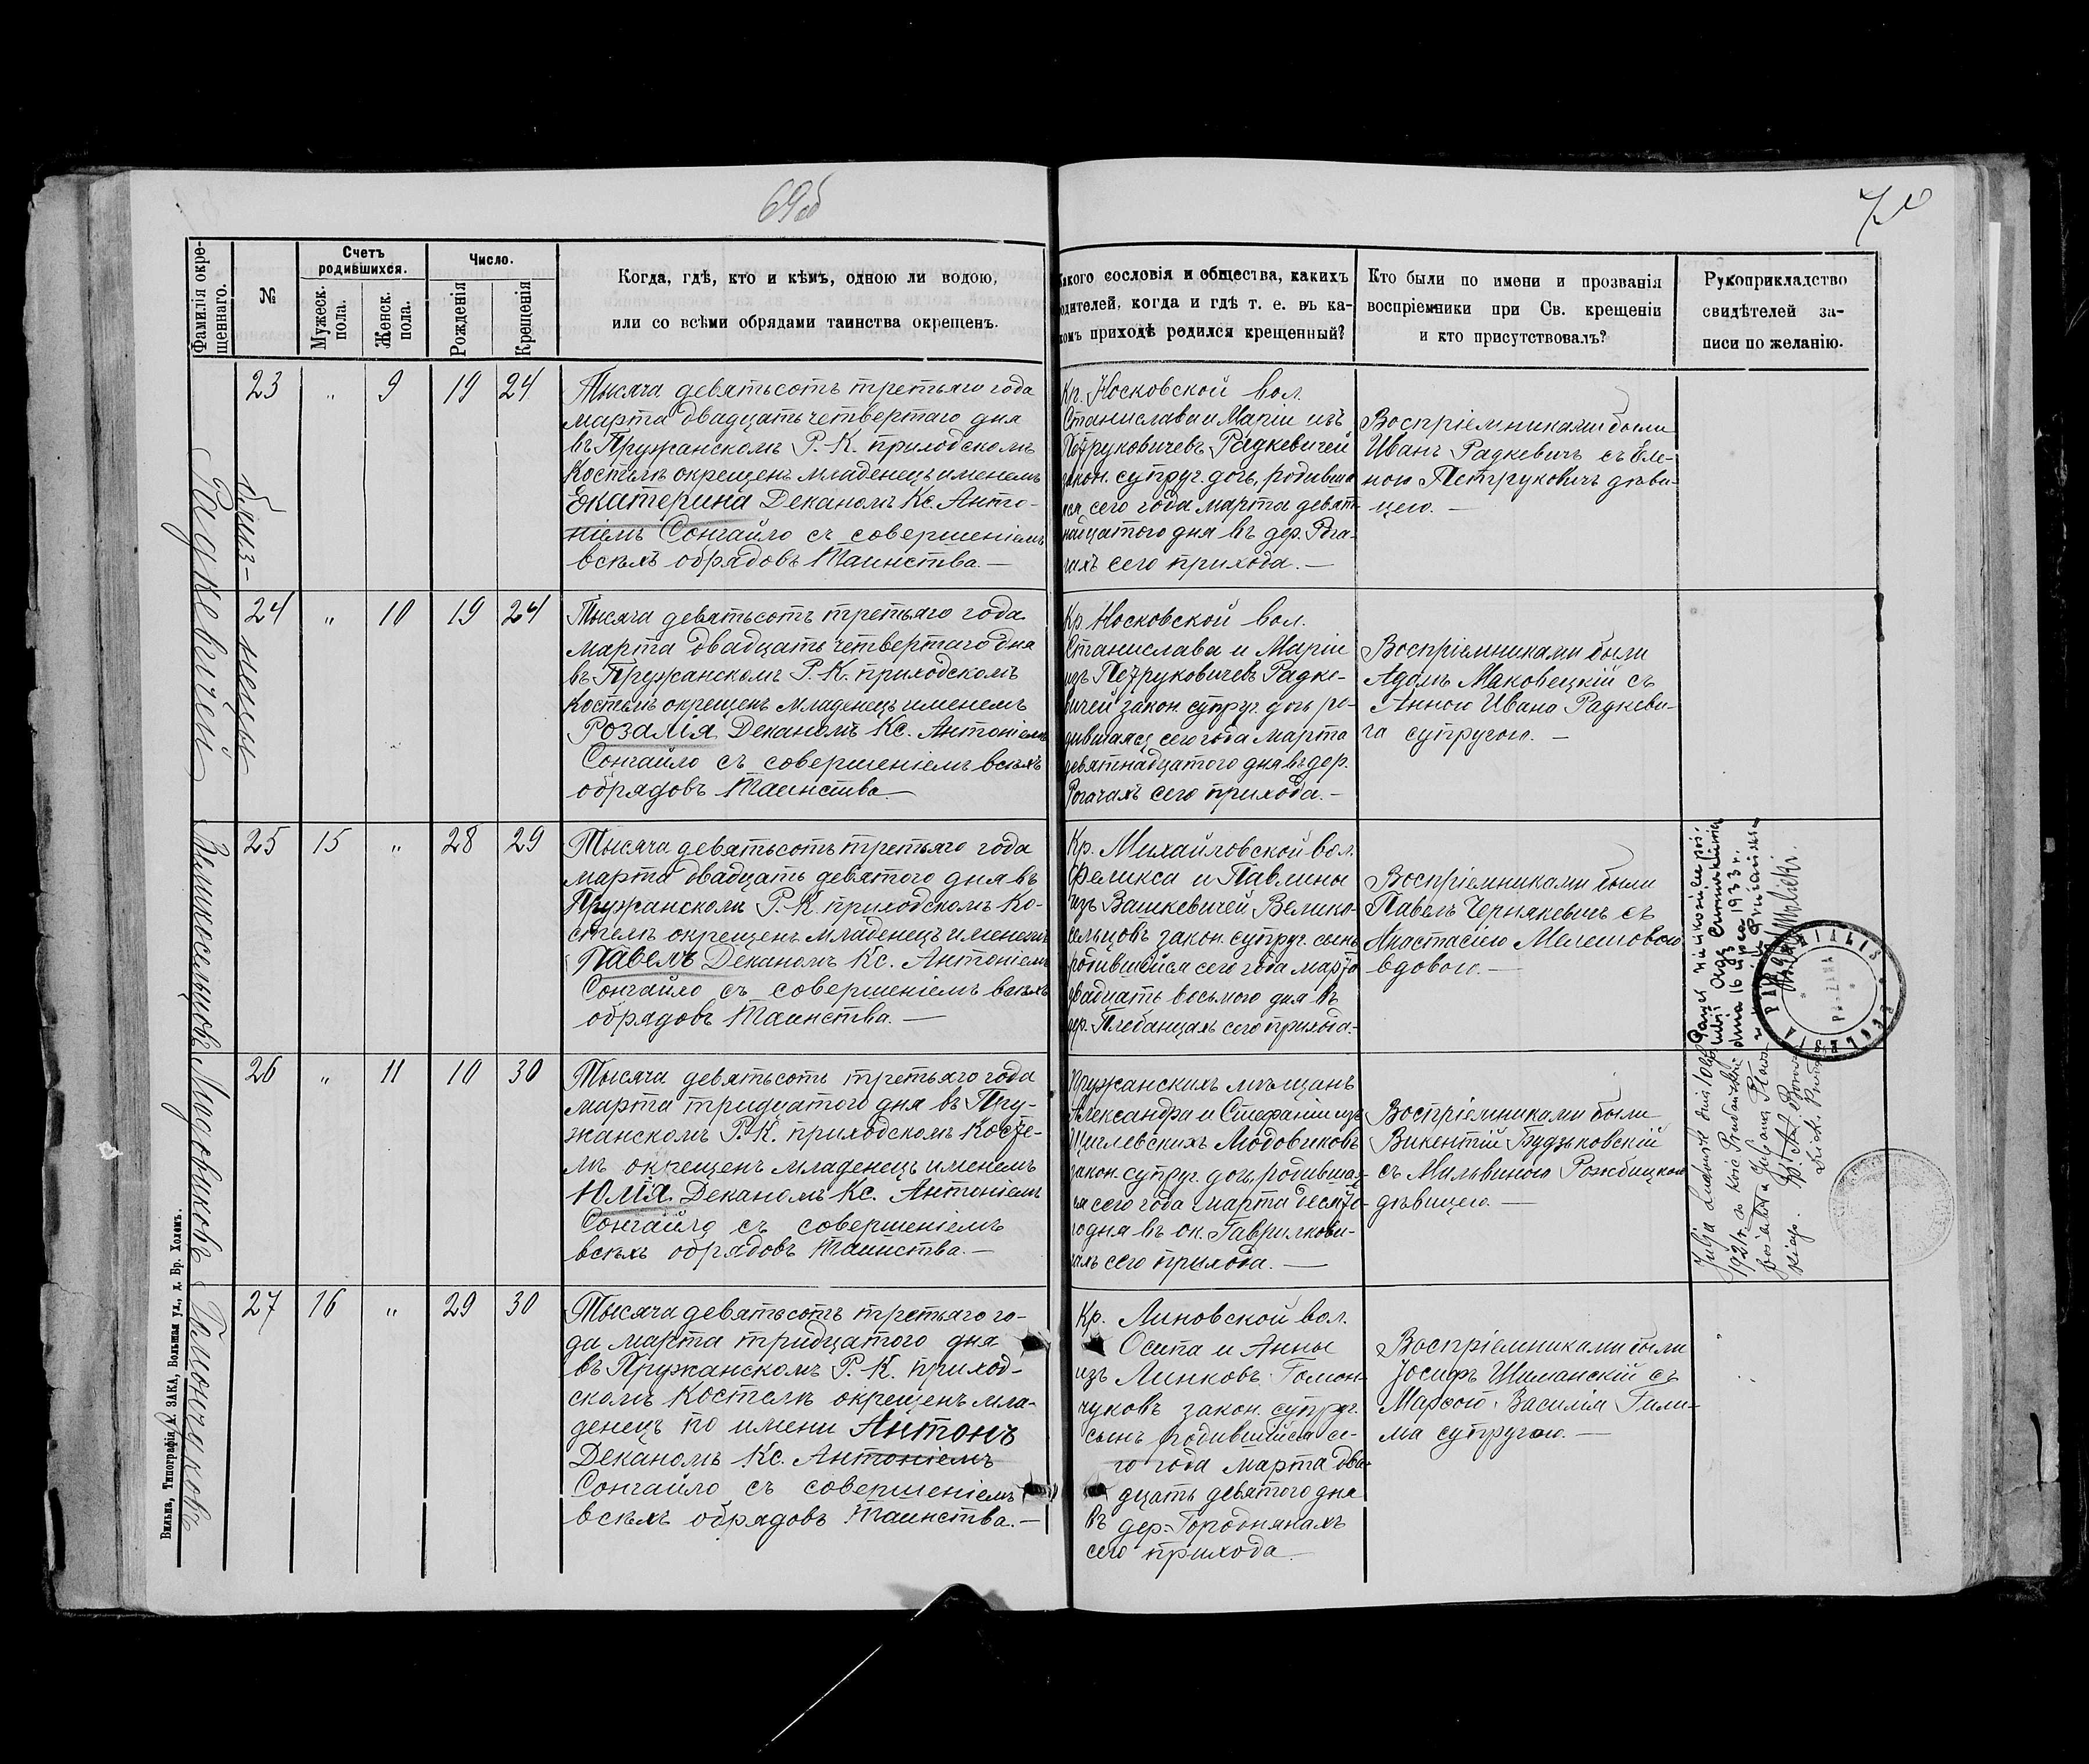 69об
70
Фамилія окре-
щеннаго.
№
Счетъ
родившихся.
Мужеск.
пола.
Женск.
пола.
Число.
Рожденія
Крещенія
Когда, гдѣ, кто и кѣмъ, одною ли водою,
или со всѣми обрядами таинства окрещенъ.
какого сословія и общества, какихъ
родителей, когда и гдѣ т. е. въ ка-
комъ приходѣ родился крещенный?
Кто были по имени и прозванія
воспріемники при Св. крещеніи
и кто присутствовалъ?
Рукоприкладство
свидѣтелей за-
писи по желанію.
Радкевичей
близ-
нецы
23 " 9 19 24
Тысяча девятьсотъ третьяго года
марта двадцать четвертаго дня
въ Пружанскомъ Р. К. приходскомъ
Костелѣ окрещенъ младенецъ именемъ
Екатерина Деканомъ Кс. Анто-
ніемъ Сонгайло съ совершеніемъ
всѣхъ обрядовъ Таинства. —
Кр. Носковской вол.
Станислава и Маріи изъ
Петруковичевъ Радкевичей
закон. супруг. дочь, родивша
яся сего года марта девят-
надцатого дня въ дер. Рога-
чахъ сего прихода. —
Воспріемниками были
Иванъ Радкевичъ съ Еле-
ною Петруковичъ дѣви-
цею. —
24 " 10 19 24
Тысяча девятьсотъ третьяго года
марта двадцать четвертаго дня
въ Пружанскомъ Р. К. приходскомъ
Костелѣ окрещенъ младенецъ именемъ
Розалія Деканомъ Кс. Антоніемъ
Сонгайло съ совершеніемъ всѣхъ
обрядовъ Таинства —
Кр Носковской вол.
Станислава и Маріи
изъ Петруковичевъ Радке-
вичей закон. супруг. дочь ро-
дившаяся сего года марта
девятнадцатого дня въ дер.
Рогачахъ сего прихода. —
Воспріемниками были
Адамъ Маковецкій съ
Анною Ивана Радкеви-
ча супругою. —
Великосельцовъ
25 15 " 28 29
Тысяча девятьсотъ третьяго года
марта двадцать девятого дня въ
Пружанскомъ Р. К. приходскомъ Ко-
стелѣ окрещенъ младенецъ именемъ
Павелъ Деканомъ Кс. Антоніемъ
Сонгайло съ совершеніемъ всѣхъ
обрядовъ Таинства. —
Кр. Михайловской вол.
Феликса и Павлины
изъ Вашкевичей Велико-
сельцовъ закон. супруг. сынъ
родившійся сего года марта
двадцать восьмого дня въ
дер. Плебанцахъ сего прихода. -
Воспріемниками были
Павелъ Чернякевичъ съ
Анастасіею Мелешовою
вдовою. —
dnia 16 lipca 1933 r.
Людовиковъ
26 " 11 10 30
Тысяча девятьсотъ третьяго года
марта тридцатого дня въ Пру-
жанскомъ Р. К. приходскомъ Косте-
лѣ окрещенъ младенецъ именемъ
Юлія Деканомъ Кс. Антоніемъ
Сонгайло съ совершеніемъ
всѣхъ обрядовъ Таинства. —
Пружанскихъ мѣщанъ
Александра и Стефаніи изъ
Щиглевскихъ Людовиковъ
закон. супруг. дочь, родивша-
яся сего года марта десято-
го дня въ ок. Гаврилкови-
чахъ сего прихода. —
Воспріемниками были
Викентій Будзьковскій
съ Мальвиною Рожбицкою
дѣвицею. —
Гомончуковъ
27 16 " 29 30
Тысяча девятьсотъ третьяго го-
да марта тридцатого дня
въ Пружанскомъ Р. К. приход-
скомъ Костелѣ окрещенъ мла-
денецъ по имени Антонъ
Деканомъ Кс. Антоніемъ
Сонгайло съ совершеніемъ
всѣхъ обрядовъ Таинства. —
Кр. Линовской вол.
Осипа и Анны
изъ Линковъ Гомон-
чуковъ закон. супруг.
сынъ родившійся се-
го года марта два-
дцать девятого дня
въ дер. Гордонянахъ
сего прихода —
Воспріемниками были
Іосифъ Шиманскій съ
Марѳою Василія Гили-
ма супругою. —
Вильна, Типографія Х. ЗАКА, Большая ул., д. Бр. Холемъ.